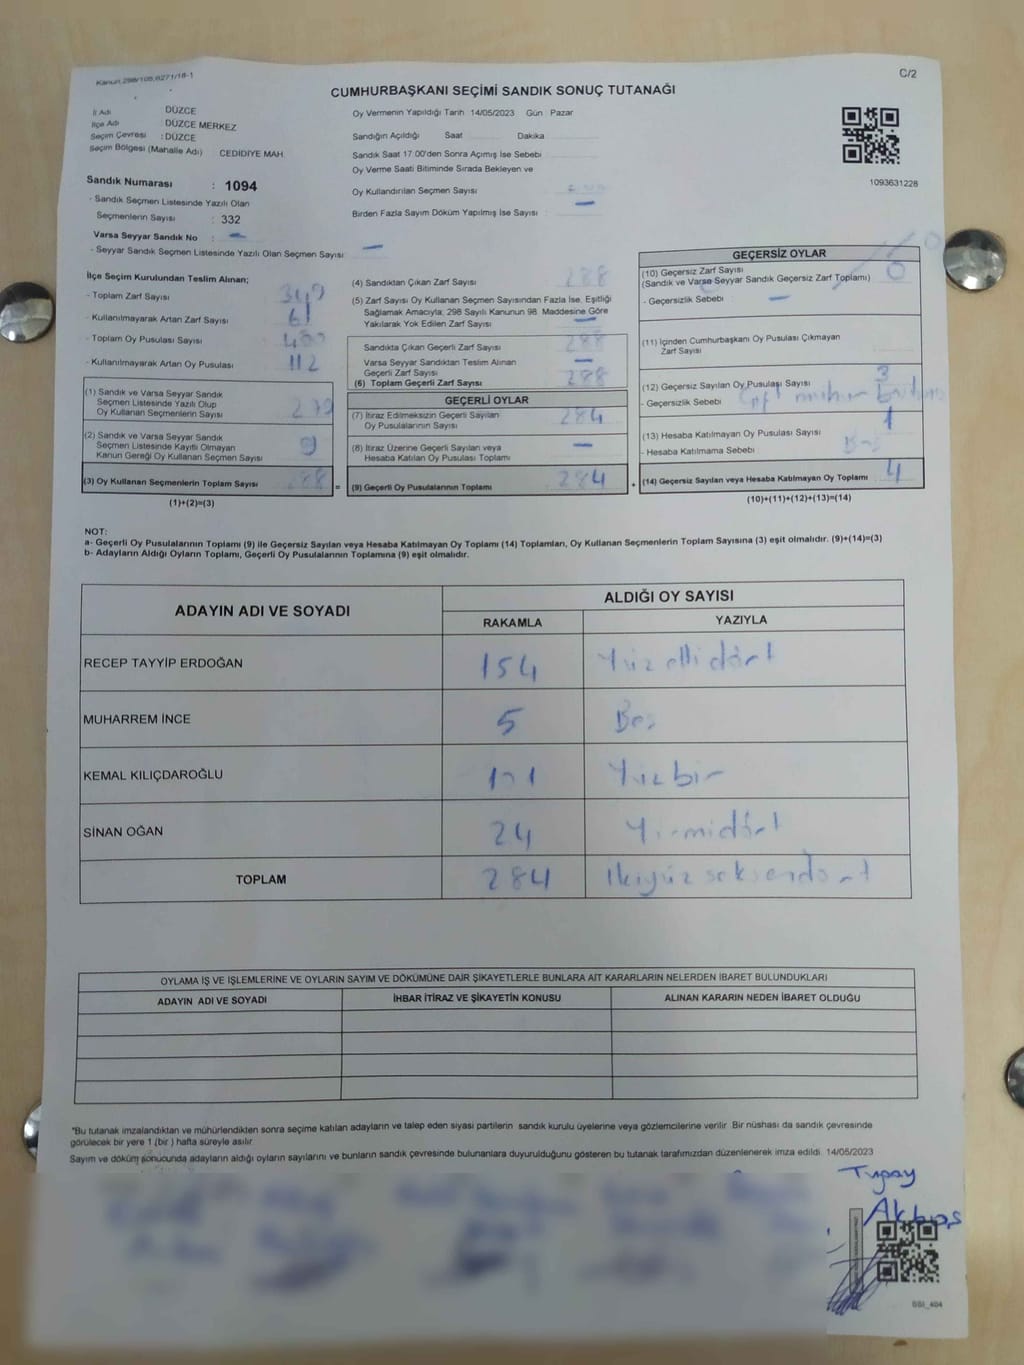 Kanun 298/105,6271/18-1
C/2
CUMHURBAŞKANI SEÇİMİ SANDIK SONUÇ TUTANAĞI
İl Adı DÜZCE
İlçe Adı DÜZCE MERKEZ
Seçim Çevresi : DÜZCE
Seçim Bölgesi (Mahalle Adı) CEDİDİYE MAH.
Oy Vermenin Yapıldığı Tarih 14/05/2023 Gün : Pazar
Sandığın Açıldığı Saat Dakika
Sandık Saat 17:00'den Sonra Açılmış İse Sebebi
Oy Verme Saati Bitiminde Sırada Bekleyen ve
Oy Kullandırılan Seçmen Sayısı
Birden Fazla Sayım Döküm Yapılmış İse Sayısı : —
1093631228
Sandık Numarası : 1094
- Sandık Seçmen Listesinde Yazılı Olan
Seçmenlerin Sayısı : 332
Varsa Seyyar Sandık No : —
- Seyyar Sandık Seçmen Listesinde Yazılı Olan Seçmen Sayısı: —
İlçe Seçim Kurulundan Teslim Alınan;
- Toplam Zarf Sayısı 349
- Kullanılmayarak Artan Zarf Sayısı 61
- Toplam Oy Pusulası Sayısı 400
- Kullanılmayarak Artan Oy Pusulası 112
(1) Sandık ve Varsa Seyyar Sandık
Seçmen Listesinde Yazılı Olup
Oy Kullanan Seçmenlerin Sayısı 279
(2) Sandık ve Varsa Seyyar Sandık
Seçmen Listesinde Kayıtlı Olmayan
Kanun Gereği Oy Kullanan Seçmen Sayısı 9
(3) Oy Kullanan Seçmenlerin Toplam Sayısı 288
(1)+(2)=(3)
(4) Sandıktan Çıkan Zarf Sayısı : 288
(5) Zarf Sayısı Oy Kullanan Seçmen Sayısından Fazla İse, Eşitliği
Sağlamak Amacıyla; 298 Sayılı Kanunun 98. Maddesine Göre
Yakılarak Yok Edilen Zarf Sayısı —
Sandıkta Çıkan Geçerli Zarf Sayısı 288
Varsa Seyyar Sandıktan Teslim Alınan
Geçerli Zarf Sayısı —
(6) Toplam Geçerli Zarf Sayısı 288
=
GEÇERLİ OYLAR
(7) İtiraz Edilmeksizin Geçerli Sayılan
Oy Pusulalarının Sayısı 284
(8) İtiraz Üzerine Geçerli Sayılan veya
Hesaba Katılan Oy Pusulası Toplamı —
(9) Geçerli Oy Pusulalarının Toplamı 284
+
GEÇERSİZ OYLAR
(10) Geçersiz Zarf Sayısı
(Sandık ve Varsa Seyyar Sandık Geçersiz Zarf Toplamı) 0
- Geçersizlik Sebebi : —
(11) İçinden Cumhurbaşkanı Oy Pusulası Çıkmayan
Zarf Sayısı
(12) Geçersiz Sayılan Oy Pusulası Sayısı 3
- Geçersizlik Sebebi Çift mühür
(13) Hesaba Katılmayan Oy Pusulası Sayısı 1
- Hesaba Katılmama Sebebi
(14) Geçersiz Sayılan veya Hesaba Katılmayan Oy Toplamı 4
(10)+(11)+(12)+(13)=(14)
NOT:
a- Geçerli Oy Pusulalarının Toplamı (9) ile Geçersiz Sayılan veya Hesaba Katılmayan Oy Toplamı (14) Toplamları, Oy Kullanan Seçmenlerin Toplam Sayısına (3) eşit olmalıdır. (9)+(14)=(3)
b- Adayların Aldığı Oyların Toplamı, Geçerli Oy Pusulalarının Toplamına (9) eşit olmalıdır.
ADAYIN ADI VE SOYADI ALDIĞI OY SAYISI
RAKAMLA YAZIYLA
RECEP TAYYİP ERDOĞAN 154 Yüz elli dört
MUHARREM İNCE 5 Beş
KEMAL KILIÇDAROĞLU 101 Yüz bir
SİNAN OĞAN 24 Yirmidört
TOPLAM 284 İkiyüz seksendört
OYLAMA İŞ VE İŞLEMLERİNE VE OYLARIN SAYIM VE DÖKÜMÜNE DAİR ŞİKAYETLERLE BUNLARA AİT KARARLARIN NELERDEN İBARET BULUNDUKLARI
ADAYIN ADI VE SOYADI İHBAR İTİRAZ VE ŞİKAYETİN KONUSU ALINAN KARARIN NEDEN İBARET OLDUĞU
"Bu tutanak imzalandıktan ve mühürlendikten sonra seçime katılan adayların ve talep eden siyasi partilerin sandık kurulu üyelerine veya gözlemcilerine verilir. Bir nüshası da sandık çevresinde
görülecek bir yere 1 (bir ) hafta süreyle asılır.
Sayım ve döküm sonucunda adayların aldığı oyların sayılarını ve bunların sandık çevresinde bulunanlara duyurulduğunu gösteren bu tutanak tarafımızdan düzenlenerek imza edildi. 14/05/2023
Tugay
Akbaş
SSI_404